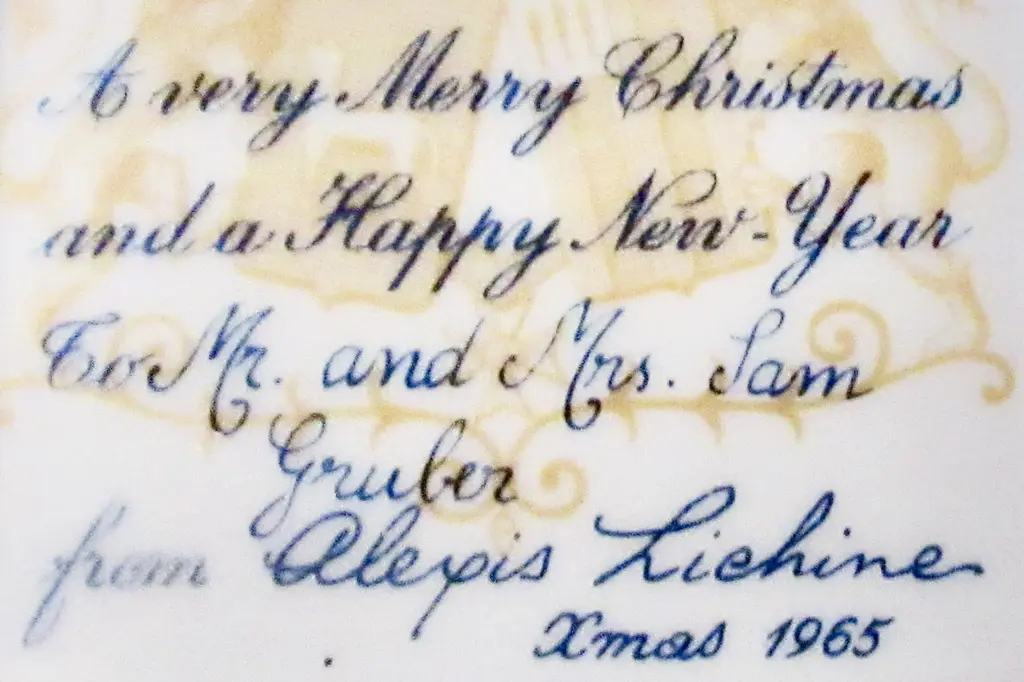 A very Merry Christmas
and a Happy New-Year
To Mr. and Mrs. Sam
Gruber
from Alexis Lichine
Xmas 1965